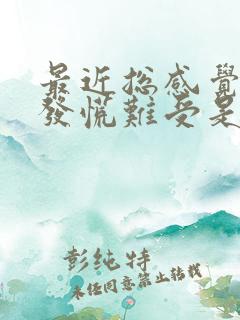 最近总感觉
發慌難受是
彭纯特
未经同意禁止转载